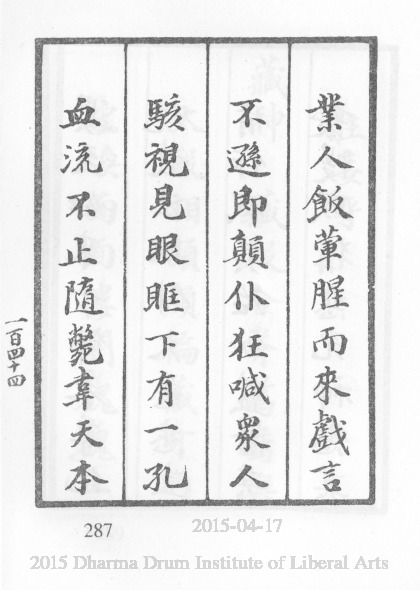 業人飯葷腥而來戲言
不遜即顛仆狂喊衆人
駭視見眼眶下有一孔
血流不止隨斃韋天本
一百四十四
287
2015-04-17
2015 Dharma Drum Institute of Liberal Arts